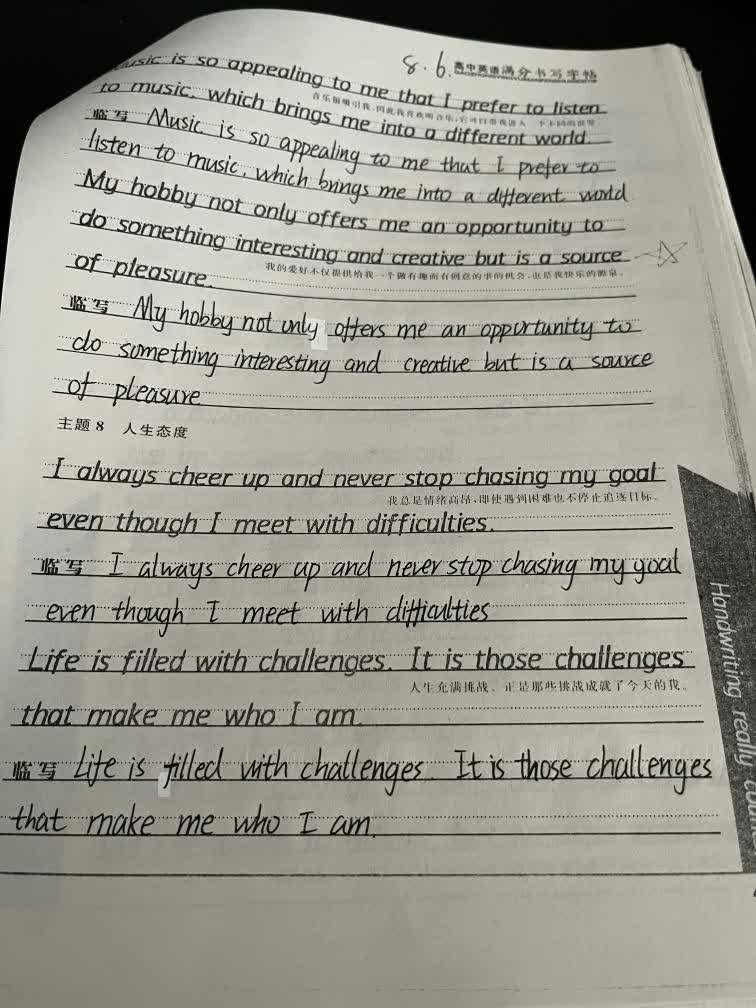 8.6. 高中英语满分书写字帖
Music is so appealing to me that I prefer to listen
音乐很吸引我,因此我喜欢听音乐,它可以带我进入一个不同的世界。
to music, which brings me into a different world.
临写 Music is so appealing to me that I prefer to
listen to music, which brings me into a different world
My hobby not only offers me an opportunity to
do something interesting and creative but is a source
我的爱好不仅提供给我一个做有趣而有创意的事的机会,也是我快乐的源泉。
of pleasure.
临写 My hobby not only offers me an opportunity to
do something interesting and creative but is a source
of pleasure
主题8 人生态度
I always cheer up and never stop chasing my goal
我总是情绪高昂,即使遇到困难也不停止追逐目标。
even though I meet with difficulties.
临写 I always cheer up and never stop chasing my goal
even though I meet with difficulties
Life is filled with challenges. It is those challenges
人生充满挑战。正是那些挑战成就了今天的我。
that make me who I am.
临写 Life is filled with challenges. It is those challenges
that make me who I am.
Handwriting really